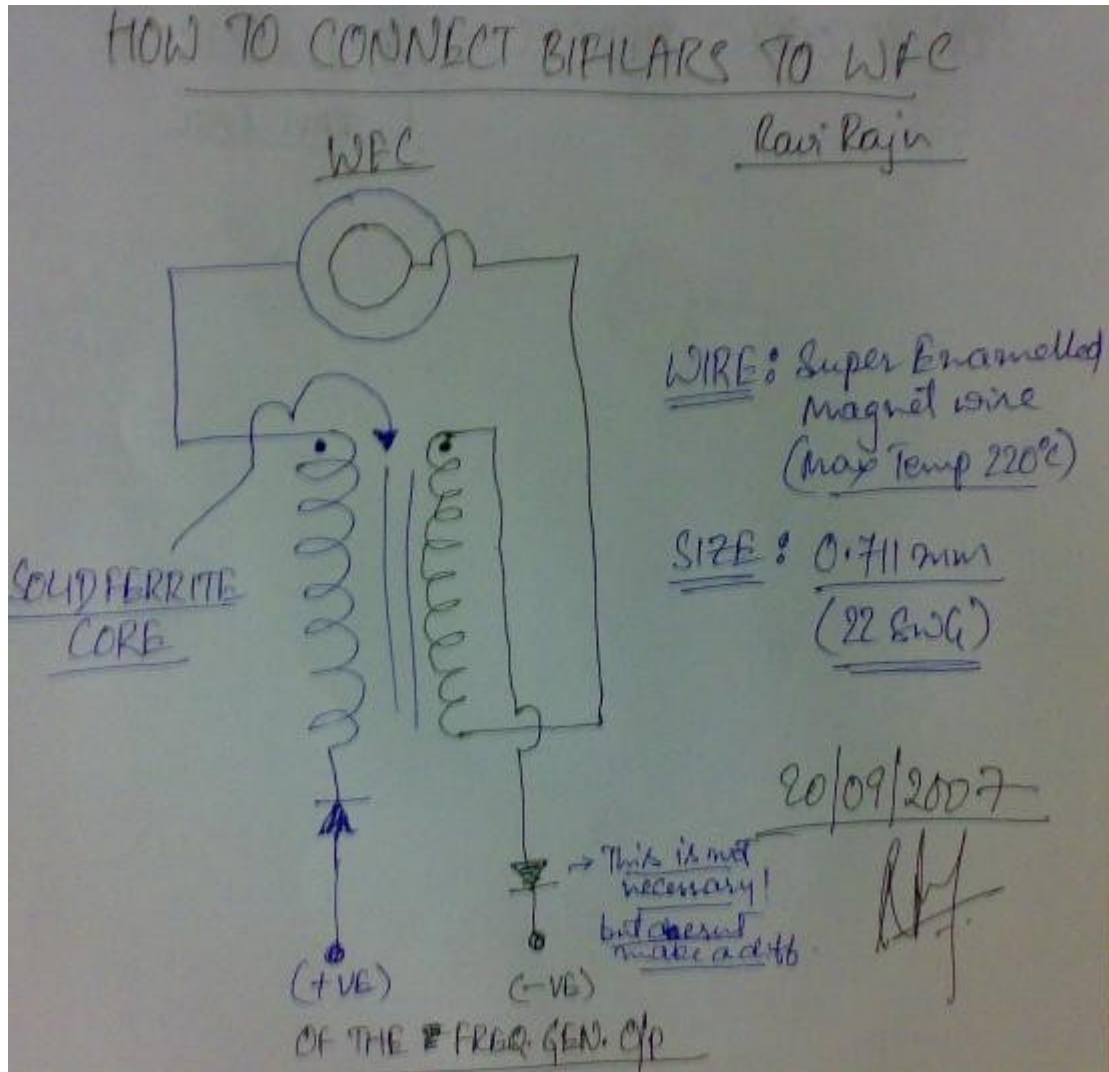 HOW TO CONNECT BIFILARS TO WFC
Ravi Raju
WFC
WIRE: Super Enamelled
Magnet wire
(Max Temp 220°C)
SIZE: 0.711 mm
(22 SWG)
SOLID FERRITE
CORE
20/09/2007
→ This is not
necessary!
but doesnt
make a diff.
(+VE)
(-VE)
OF THE FREQ. GEN. O/P